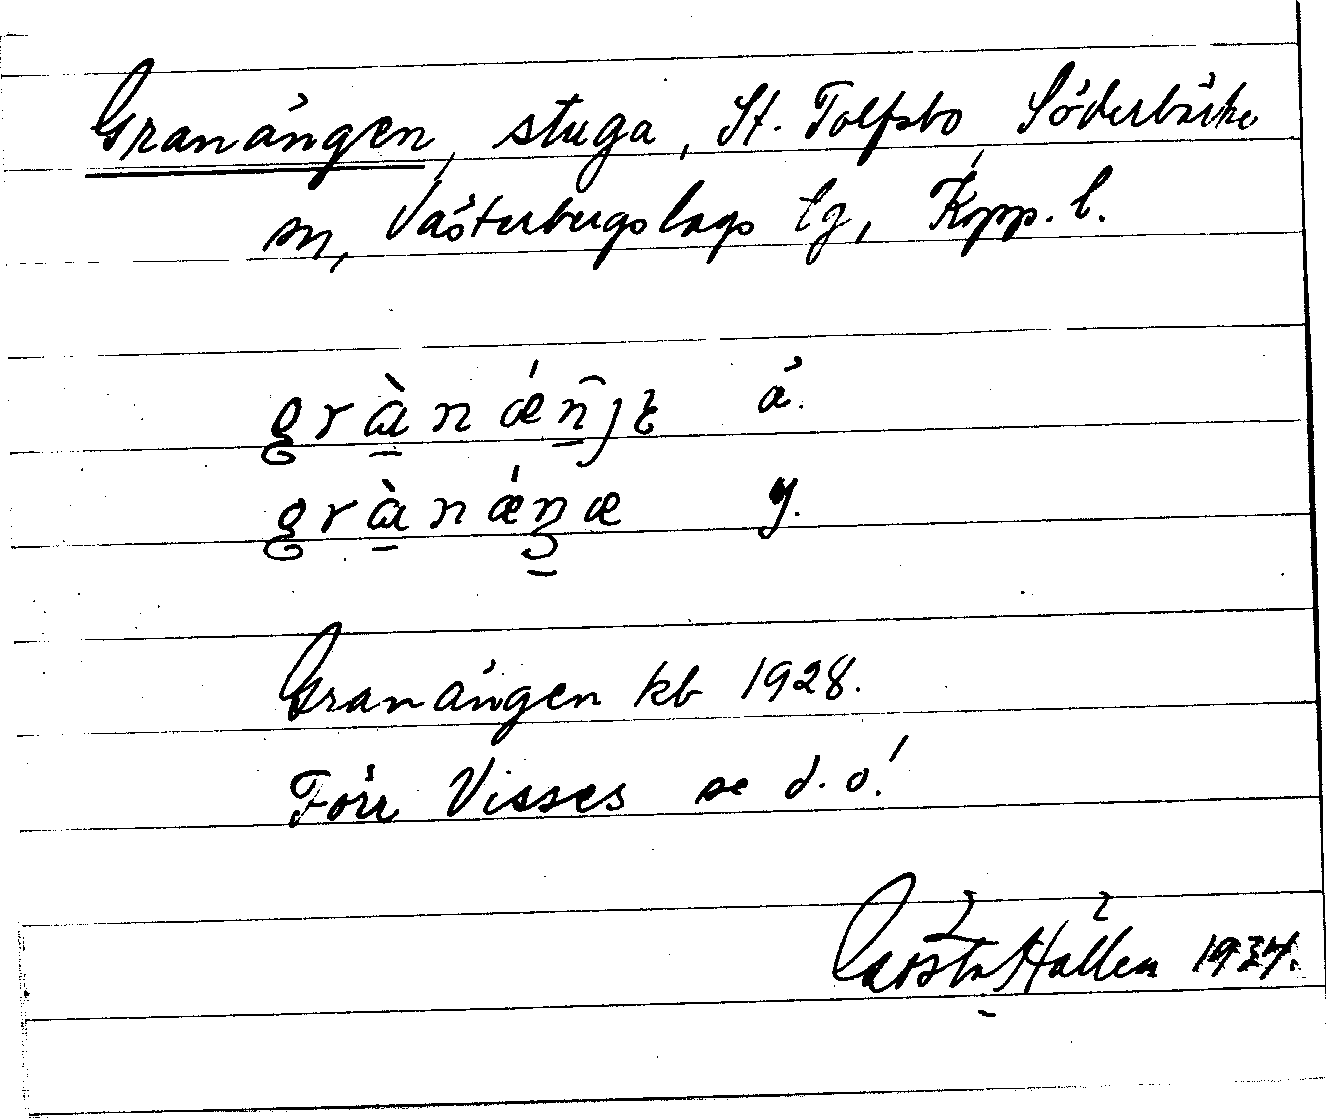 Granängen, stuga, St. Tolfsbo Söderbärke
sn, Västerbergslags tg, Kopp. l.
grànǽn̂jɛ ä.
grànǽŋæ y.
Granängen kb 1928.
Förr Visses se d. o.!
Gösta Hallen 1934.